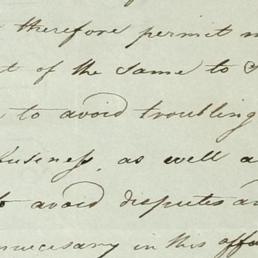 therefore permit m
t of the same to
to avoid troubling
business, as well a
to avoid disputes an
nnecesary in this affa